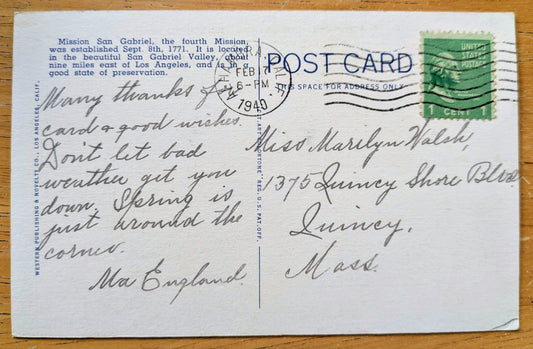 Mission San Gabriel, the fourth Mission,
was established Sept. 8th, 1771. It is located
in the beautiful San Gabriel Valley, about
nine miles east of Los Angeles, and is in a
good state of preservation.
Many thanks for
card & good wishes.
Don't let bad
weather get you
down. Spring is
just around the
corner.
Ma England.
WESTERN PUBLISHING & NOVELTY CO., LOS ANGELES, CALIF.
REG. U.S. PAT. OFF.
ALHAMBRA CALIF.
FEB 7
6-PM
1940
POST CARD
THIS SPACE FOR ADDRESS ONLY
UNITED
STATES
POSTAGE
1 CENT 1
Miss Marilyn Walsh,
1375 Quincy Shore Blvd
Quincy,
Mass.